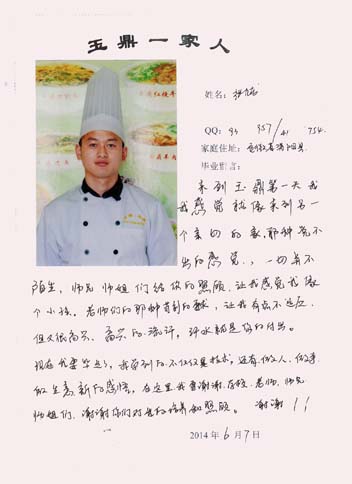 玉鼎一家人
姓名：
QQ：
家庭住址：安徽省涡阳县
毕业留言：
来到玉鼎第一天我
我感觉就像来到另一
个亲切的家，那种说不
出的感觉，一切都不
陌生，师兄师姐们给我的照顾，让我感觉我像
个小孩。老师们的，让我有点不适应
但又很高兴、高兴的流汗，汗水就是我的付出。
现在我要毕业了，我学到的不仅仅是技术，还有做人、做事
的感悟，在这里我要谢谢，老师，师兄
师姐们，谢谢你们对我的培养和照顾。谢谢！！
2014年6月7日